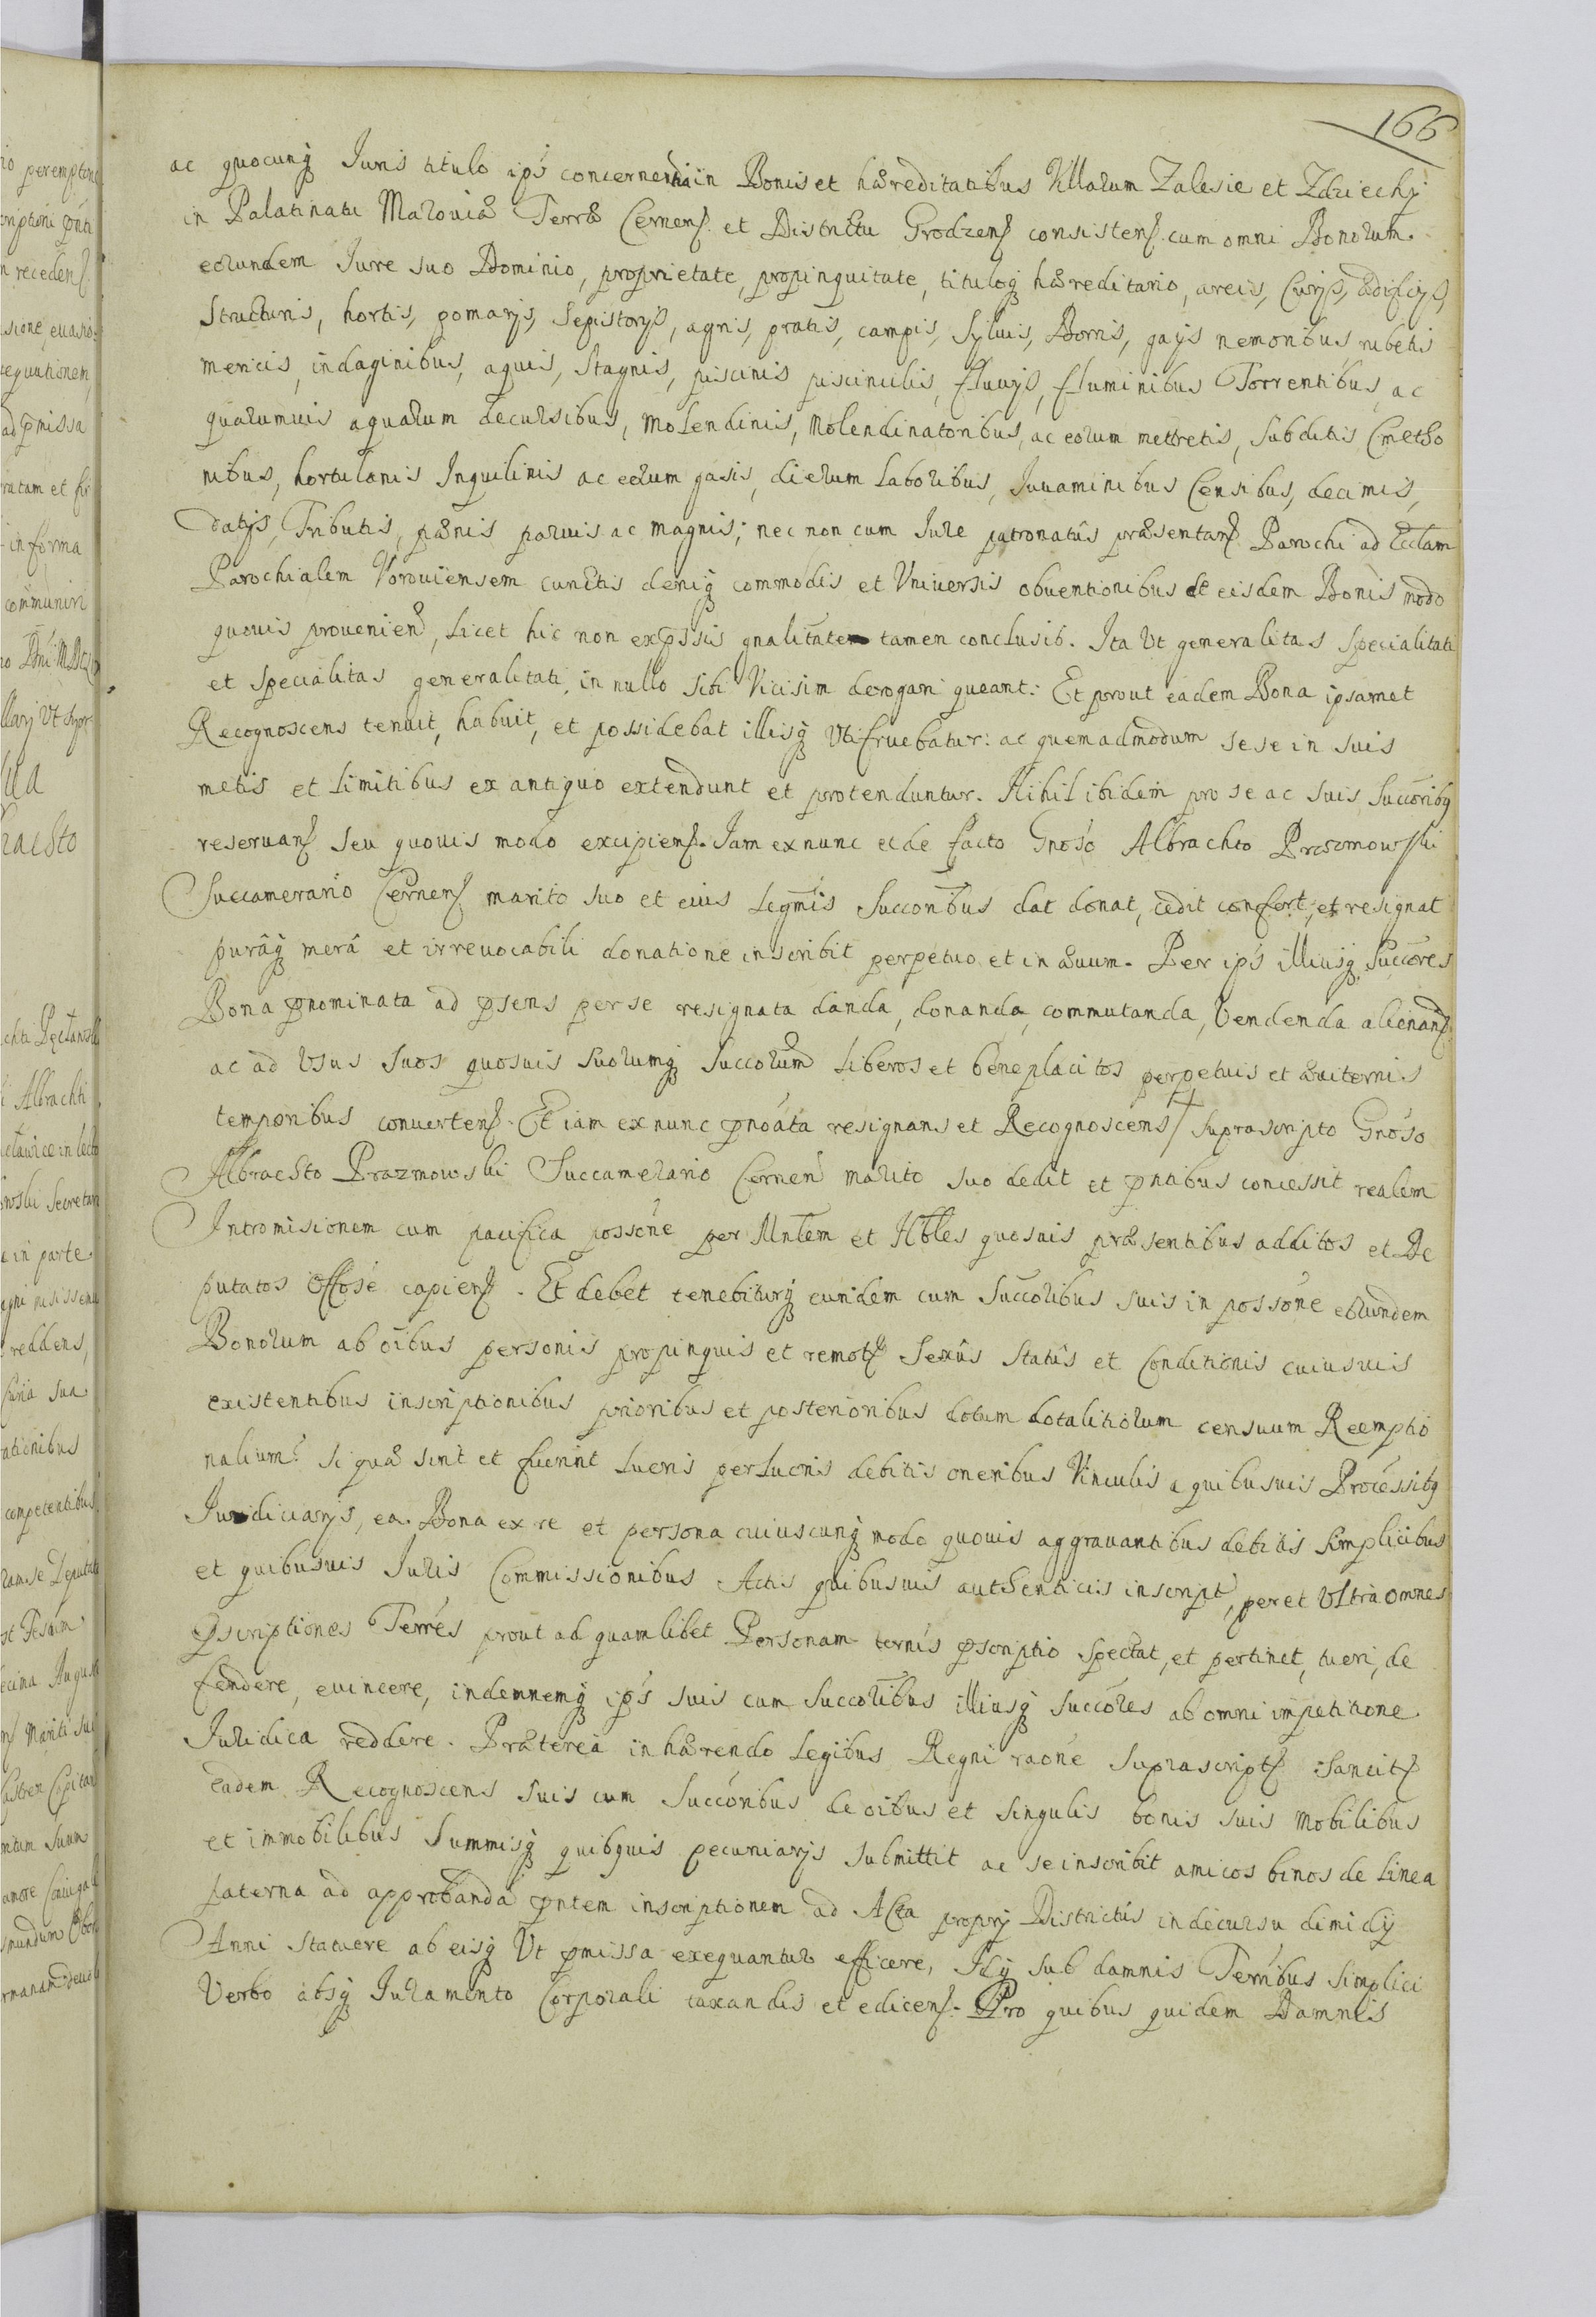 166
ac quocunq Juris titulo ips concernentia in Bonis et hæreditatibus Villarum Zalesie et Zdziechy
in Palatinatu Mazoviæ Terræ Cernens et Districtu Grodzens consistens cum omni Bonorum
eorundem Jure suo Dominio, proprietate, propinquitate, tituloq hæreditario, areis, Curijs, ædificijs,
Structuris, hortis, pomarijs, Sepistorijs, agris, pratis, campis, Sylvis, Borris, gajis nemoribus rubetis
mericis, indaginibus, aquis, Stagnis, piscinis pisciniculis, fluvijs, fluminibus Torrentibus, ac
quarumvis aquarum decursibus, Molendinis, Molendinatoribus, ac eorum mettretis, Subditis Cmetho
nibus, hortulanis Inquilinis ac eorum gasis, dierum Laboribus, Juvaminibus Censibus, decimis,
Datijs, Tributis, pænis parvis ac magnis; nec non cum Jure patronatûs præsentans Parochi ad Ecclam
Parochialem Vorouiensem cunctis deniq commodis et Universis obventionibus de eisdem Bonis modo
quovis provenien, Licet hic non expssis gnalitate tamen conclusis. Ita Ut generalitas Specialitati
et Specialitas generalitati, in nullo Sibi Vicisim derogari queant: Et prout eadem Bona ipsamet
Recognoscens tenuit, habuit, et possidebat illisq Uti fruebatur: ac quemadmodum sese in suis
metis et Limitibus ex antiquo extendunt et protenduntur. Nihil ibidem pro se ac suis Succoribq
reservans seu quovis modo excipiens. Iam ex nunc et de facto Gnoso Albrachto Prazmowski
Succamerario Cernens marito suo et eius Legmis Succoribus dat donat, cedit confert, et resignat
purâq merâ et irrevocabili donatione inscribit perpetuo et in ævum. Per ips illiusq Succores
Bona pnominata ad psens per se resignata danda, donanda, commutanda, Vendenda alienans
ac ad Usus suos quosvis Suorumq Succorum Liberos et beneplacitos perpetuis et æviternis
temporibus convertens. Et iam ex nunc pnoata resignans et Recognoscens suprascripto Gnoso
Albrachto Prazmowski Succamerario Cernen marito suo dedit et pntibus concessit realem
Intromisionem cum pacifica possone per Mntem et Hbles quosvis præsentibus additos et De
putatos Offose capiens. Et debet tenebiturq eundem cum Succoribus suis in possone eorundem
Bonorum ab oibus personis propinquis et remots Sexûs Statûs et Conditionis cuiusvis
existentibus inscriptionibus prioribus et posterioribus dotum dotalitiorum censuum Reemptio
nalium si quæ sint et fuerint Lucris perLucris debitis oneribus Vinculis a quibusvis Processibq
Juridiciarijs, ea Bona ex re et persona cuiuscunq modo quovis aggravantibus debitis Simplicibus
et quibusvis Juris Commissionibus Actis quibusvis authenticis inscript, per et Ultra omnes
pscriptiones Terres prout ad quamlibet Personam terris pscriptio spectat, et pertinet, tueri, de
fendere, evincere, indemnemq ips suis cum Succoribus illiusq succores ab omni impetitione
Juridica reddere. Præterea inhærendo Legibus Regni raone suprascripts Sancits
eadem Recognoscens suis cum Succoribus de oibus et singulis bonis suis Mobilibus
et immobilibus Summisq quibqvis pecuniarijs submittit ac se inscribit amicos binos de Linea
paterna ad approbanda pntem inscriptionem ad Acta proprij Districtûs in decursu dimidij
Anni statuere ab eisq Ut pmissa exequantur efficere, Idq sub damnis Terribus Simplici
Verbo absq Juramento Corporali taxandis et edicens. Pro quibus quidem Damnis